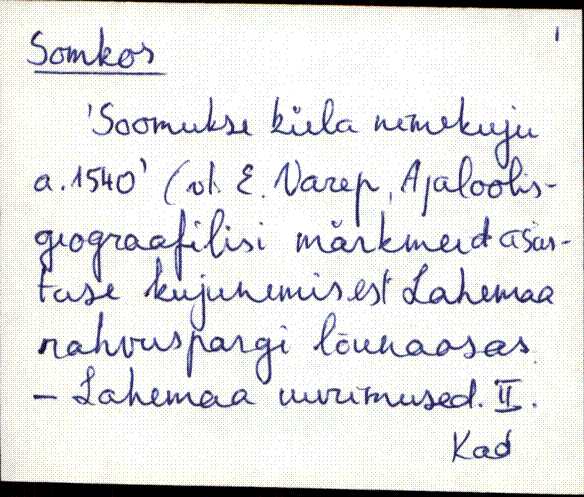 Somkos
'Soomukse küla nimekuju
a. 1540' (vt. E. Varep, Ajaloolis-
geograafilisi märkmeid asus-
tuse kujunemisest Lahemaa
rahvuspargi lõunaosas.
– Lahemaa uurimused. II.
Kad